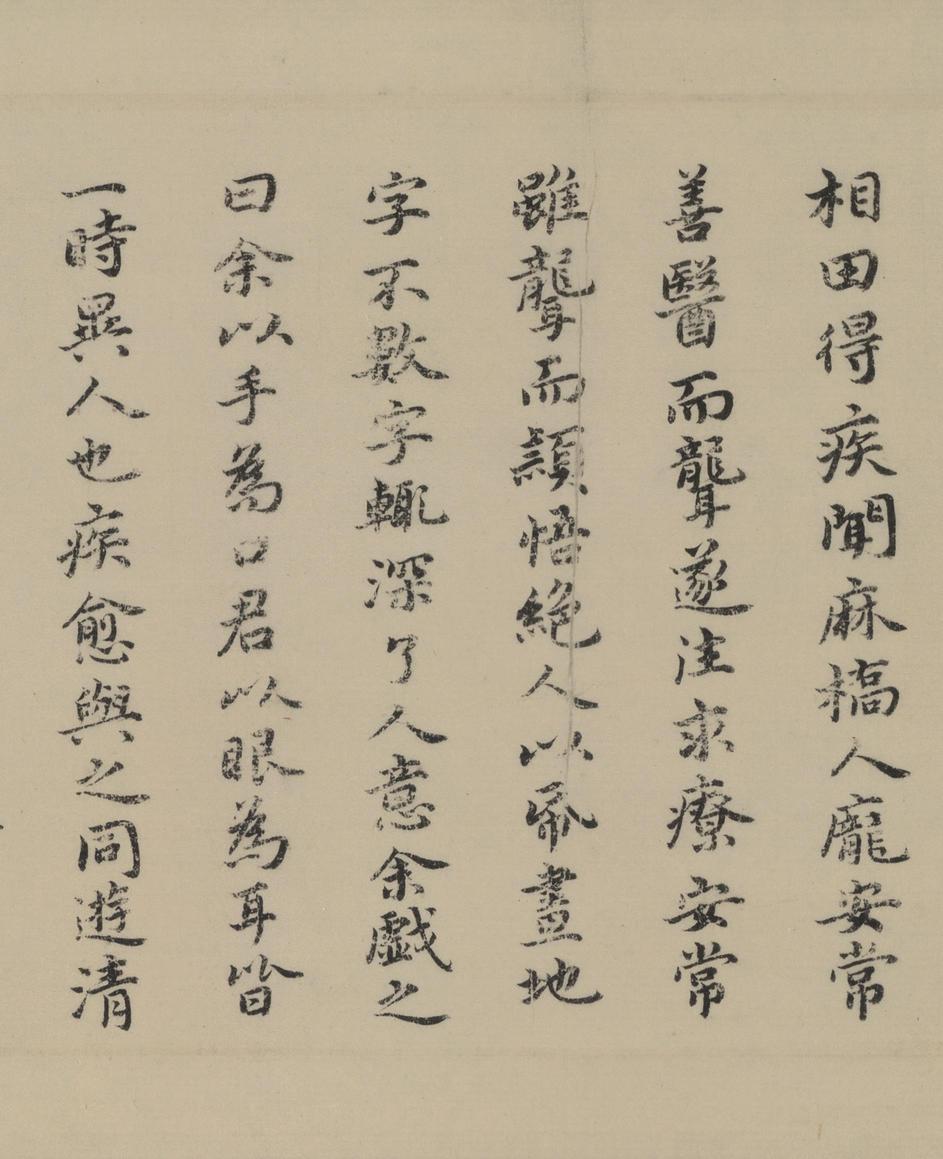 相田得疾聞麻橋人龐安常
善醫而聾遂往求療安常
雖聾而穎悟絕人以帋畫地
字不數字輙深了人意余戲之
曰余以手為口君以眼為耳皆
一時異人也疾愈與之同遊清